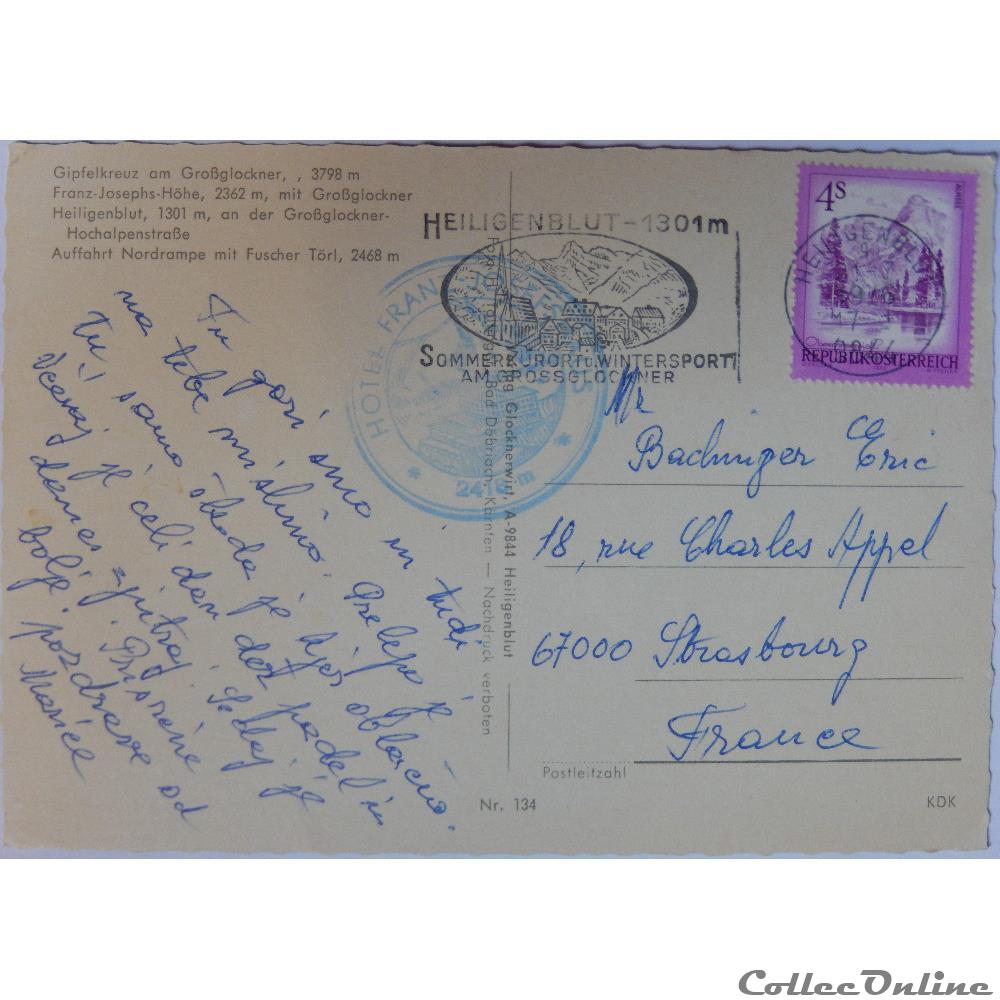 Gipfelkreuz am Großglockner, , 3798 m
Franz-Josephs-Höhe, 2362 m, mit Großglockner
Heiligenblut, 1301 m, an der Großglockner-
Hochalpenstraße
Auffahrt Nordrampe mit Fuscher Törl, 2468 m
Tu gori smo in tudi
na tebe mislimo. Prelepo je
tu, samo škoda je kjer oblačno.
Včeraj je celi dan dež padel in
danes zjutraj. Sedaj je
bolje. Prisrčne
pozdrave od
Marice
HEILIGENBLUT-1301m
SOMMERKURORT U. WINTERSPORT
AM GROSSGLOCKNER
HOTEL FRANZ
2418 m
Verlag Glocknerwirt, A-9844 Heiligenblut
Bad Döbriach, Kärnten — Nachdruck verboten
4S
ALMSEE
REPUBLIK ÖSTERREICH
HEILIGENBL
Mr
Bachinger Eric
18, rue Charles Appel
67000 Strasbourg
France
Postleitzahl
Nr. 134
KDK
CollecOnline